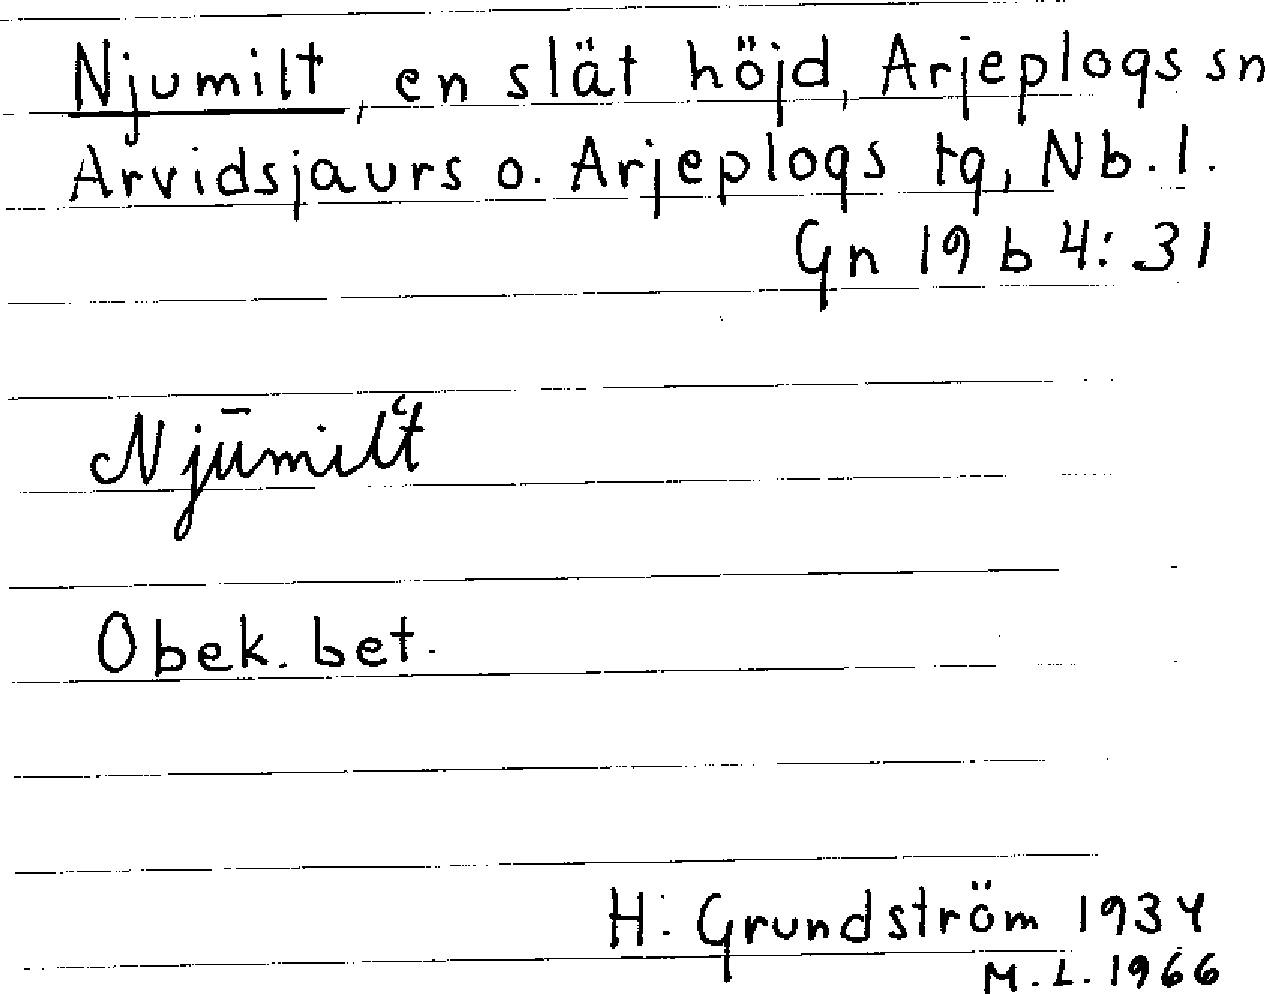 Njumilt, en slät höjd, Arjeplogs sn
Arvidsjaurs o. Arjeplogs tg, Nb. l.
Gn 19 b 4:31
Njūmilʻt
Obek. bet.
H. Grundström 1934
M. L. 1966